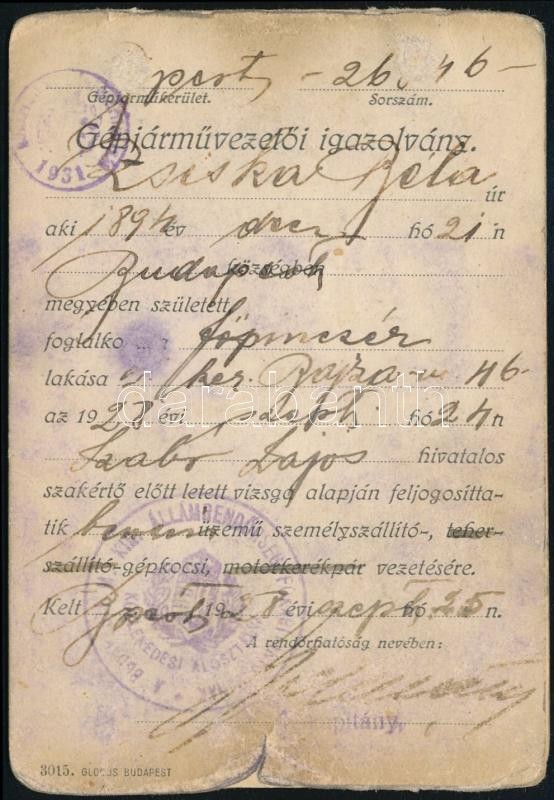 pest, - 26.146 -
Gépjárműkerület. Sorszám.
Gépjárművezetői igazolvány.
Zsiska Béla úr
aki 1894 év dec hó 21 n
Budapest községben
megyében született
foglalko főpincsér
lakása ker. Bajza u. 46
az 1928 évi szept. hó 24 n
Szabó Lajos hivatalos
szakértő előtt letett vizsga alapján feljogosítta-
tik üzemű személyszállító-, teher-
szállító-gépkocsi, motorkerékpár vezetésére.
Kelt Bpest 1928 évi szept. hó 25 n.
A rendőrhatóság nevében:
3015. GLOBUS BUDAPEST
1931
darabanth